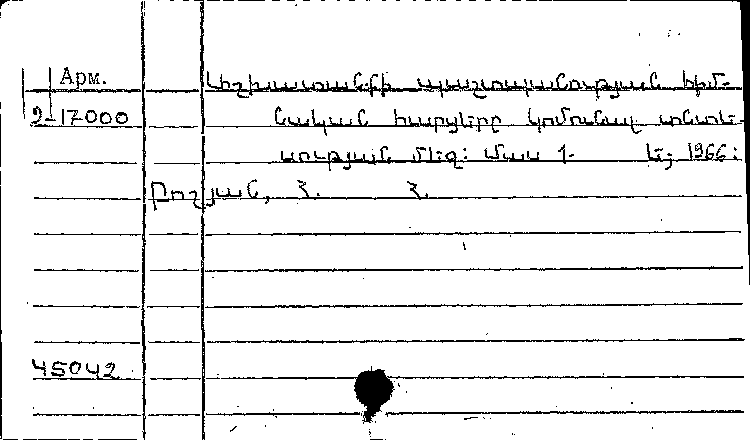 Арм.
Աշխատանքի պաշտպանության հիմ-
2-17000 նական հարցերը կոմունալ տնտե-
սության մեջ: Մաս 1. Ե., 1966:
Բոշյան, Հ. Հ.
45042